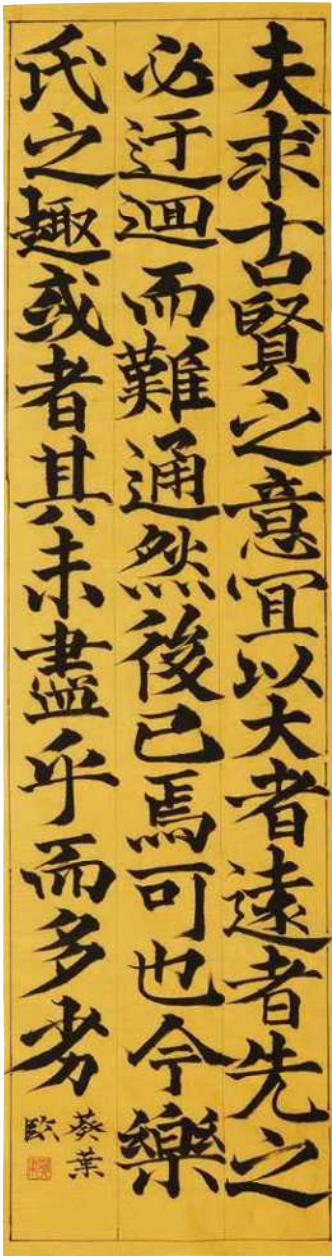 夫求古賢之意冝以大者遠者先之
必迂逥而難通然後已焉可也今樂
氏之趣或者其未盡乎而多劣
葵葉